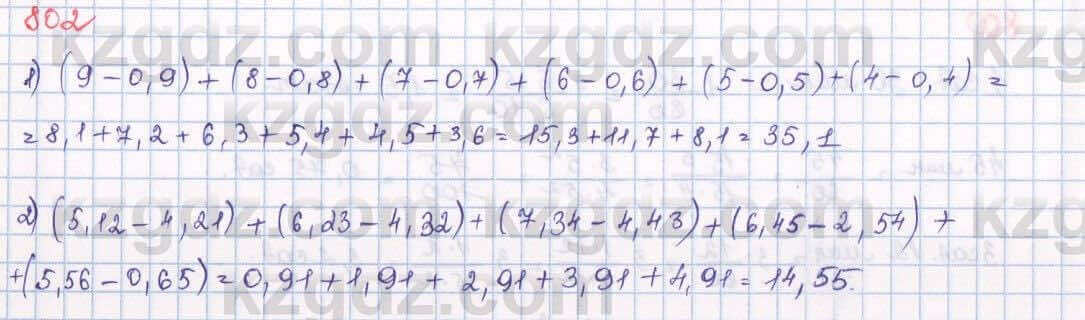 802
1) (9-0,9)+(8-0,8)+(7-0,7)+(6-0,6)+(5-0,5)+(4-0,4)=
=8,1+7,2+6,3+5,4+4,5+3,6=15,3+11,7+8,1=35,1
2) (5,12-4,21)+(6,23-4,32)+(7,34-4,43)+(6,45-2,54)+
+(5,56-0,65)=0,91+1,91+2,91+3,91+4,91=14,55.
kzgdz.com